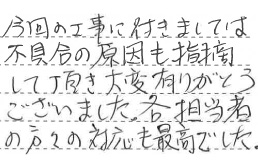 今回の工事に付きましては
不具合の原因も指摘
して頂き大変有りがとう
ございました。各担当者
の方々の対応も最高でした。